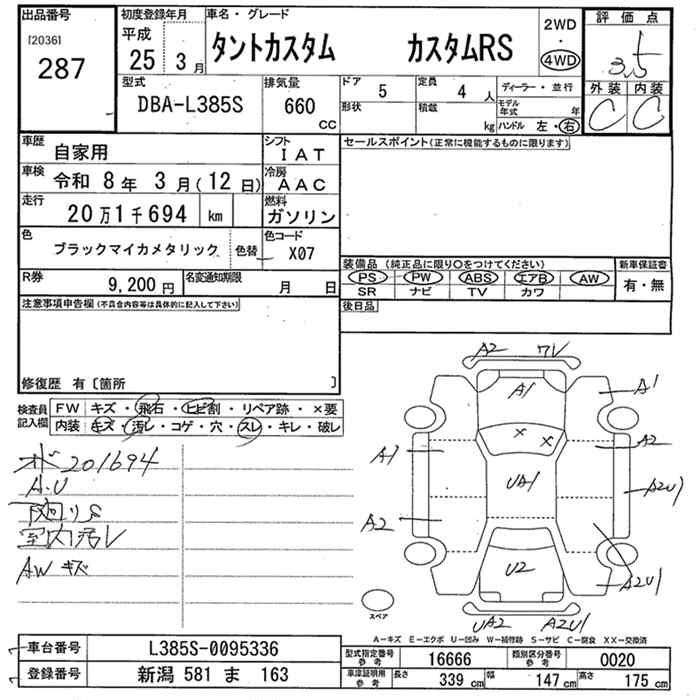 出品番号
[2036]
287
初度登録年月
平成
25 3月
車名・グレード
タントカスタム カスタムRS
2WD
・
4WD
評価点
3.5
外装 内装
C C
型式
DBA-L385S
排気量
660
CC
ドア 5
形状
定員 4人
積載 kg
ディーラー・並行
モデル年式 年
ハンドル 左・右
車歴
自家用
シフト
IAT
車検
令和 8年 3月(12日)
冷房
AAC
走行
20万1千694 km
燃料
ガソリン
色
ブラックマイカメタリック
色替
色コード
X07
R券
9,200円
名変通知期限
月 日
セールスポイント(正常に機能するものに限ります)
装備品(純正品に限り○をつけてください)
PS PW ABS エアB AW
SR ナビ TV カワ
新車保証書
有・無
後日品
注意事項申告欄(不具合内容等は具体的に記入して下さい)
修復歴 有〔箇所 〕
検査員記入欄
FW キズ・飛石・ヒビ割・リペア跡・×要
内装 キズ・汚レ・コゲ・穴・スレ・キレ・破レ
201694
A.U
下廻りS
室内汚レ
AW キズ
A2 ワレ
A1
A1
× ×
A1
A2
UA1
A2U1
A2
U2
A2U1
UA2 A2U1
スペア
A-キズ E-エクボ U-凹み W-補修跡 S-サビ C-腐食 XX-交換済
車台番号 L385S-0095336
登録番号 新潟 581 ま 163
型式指定番号 参考 16666 類別区分番号 参考 0020
車庫証明用 参考 長さ 339cm 幅 147cm 高さ 175cm